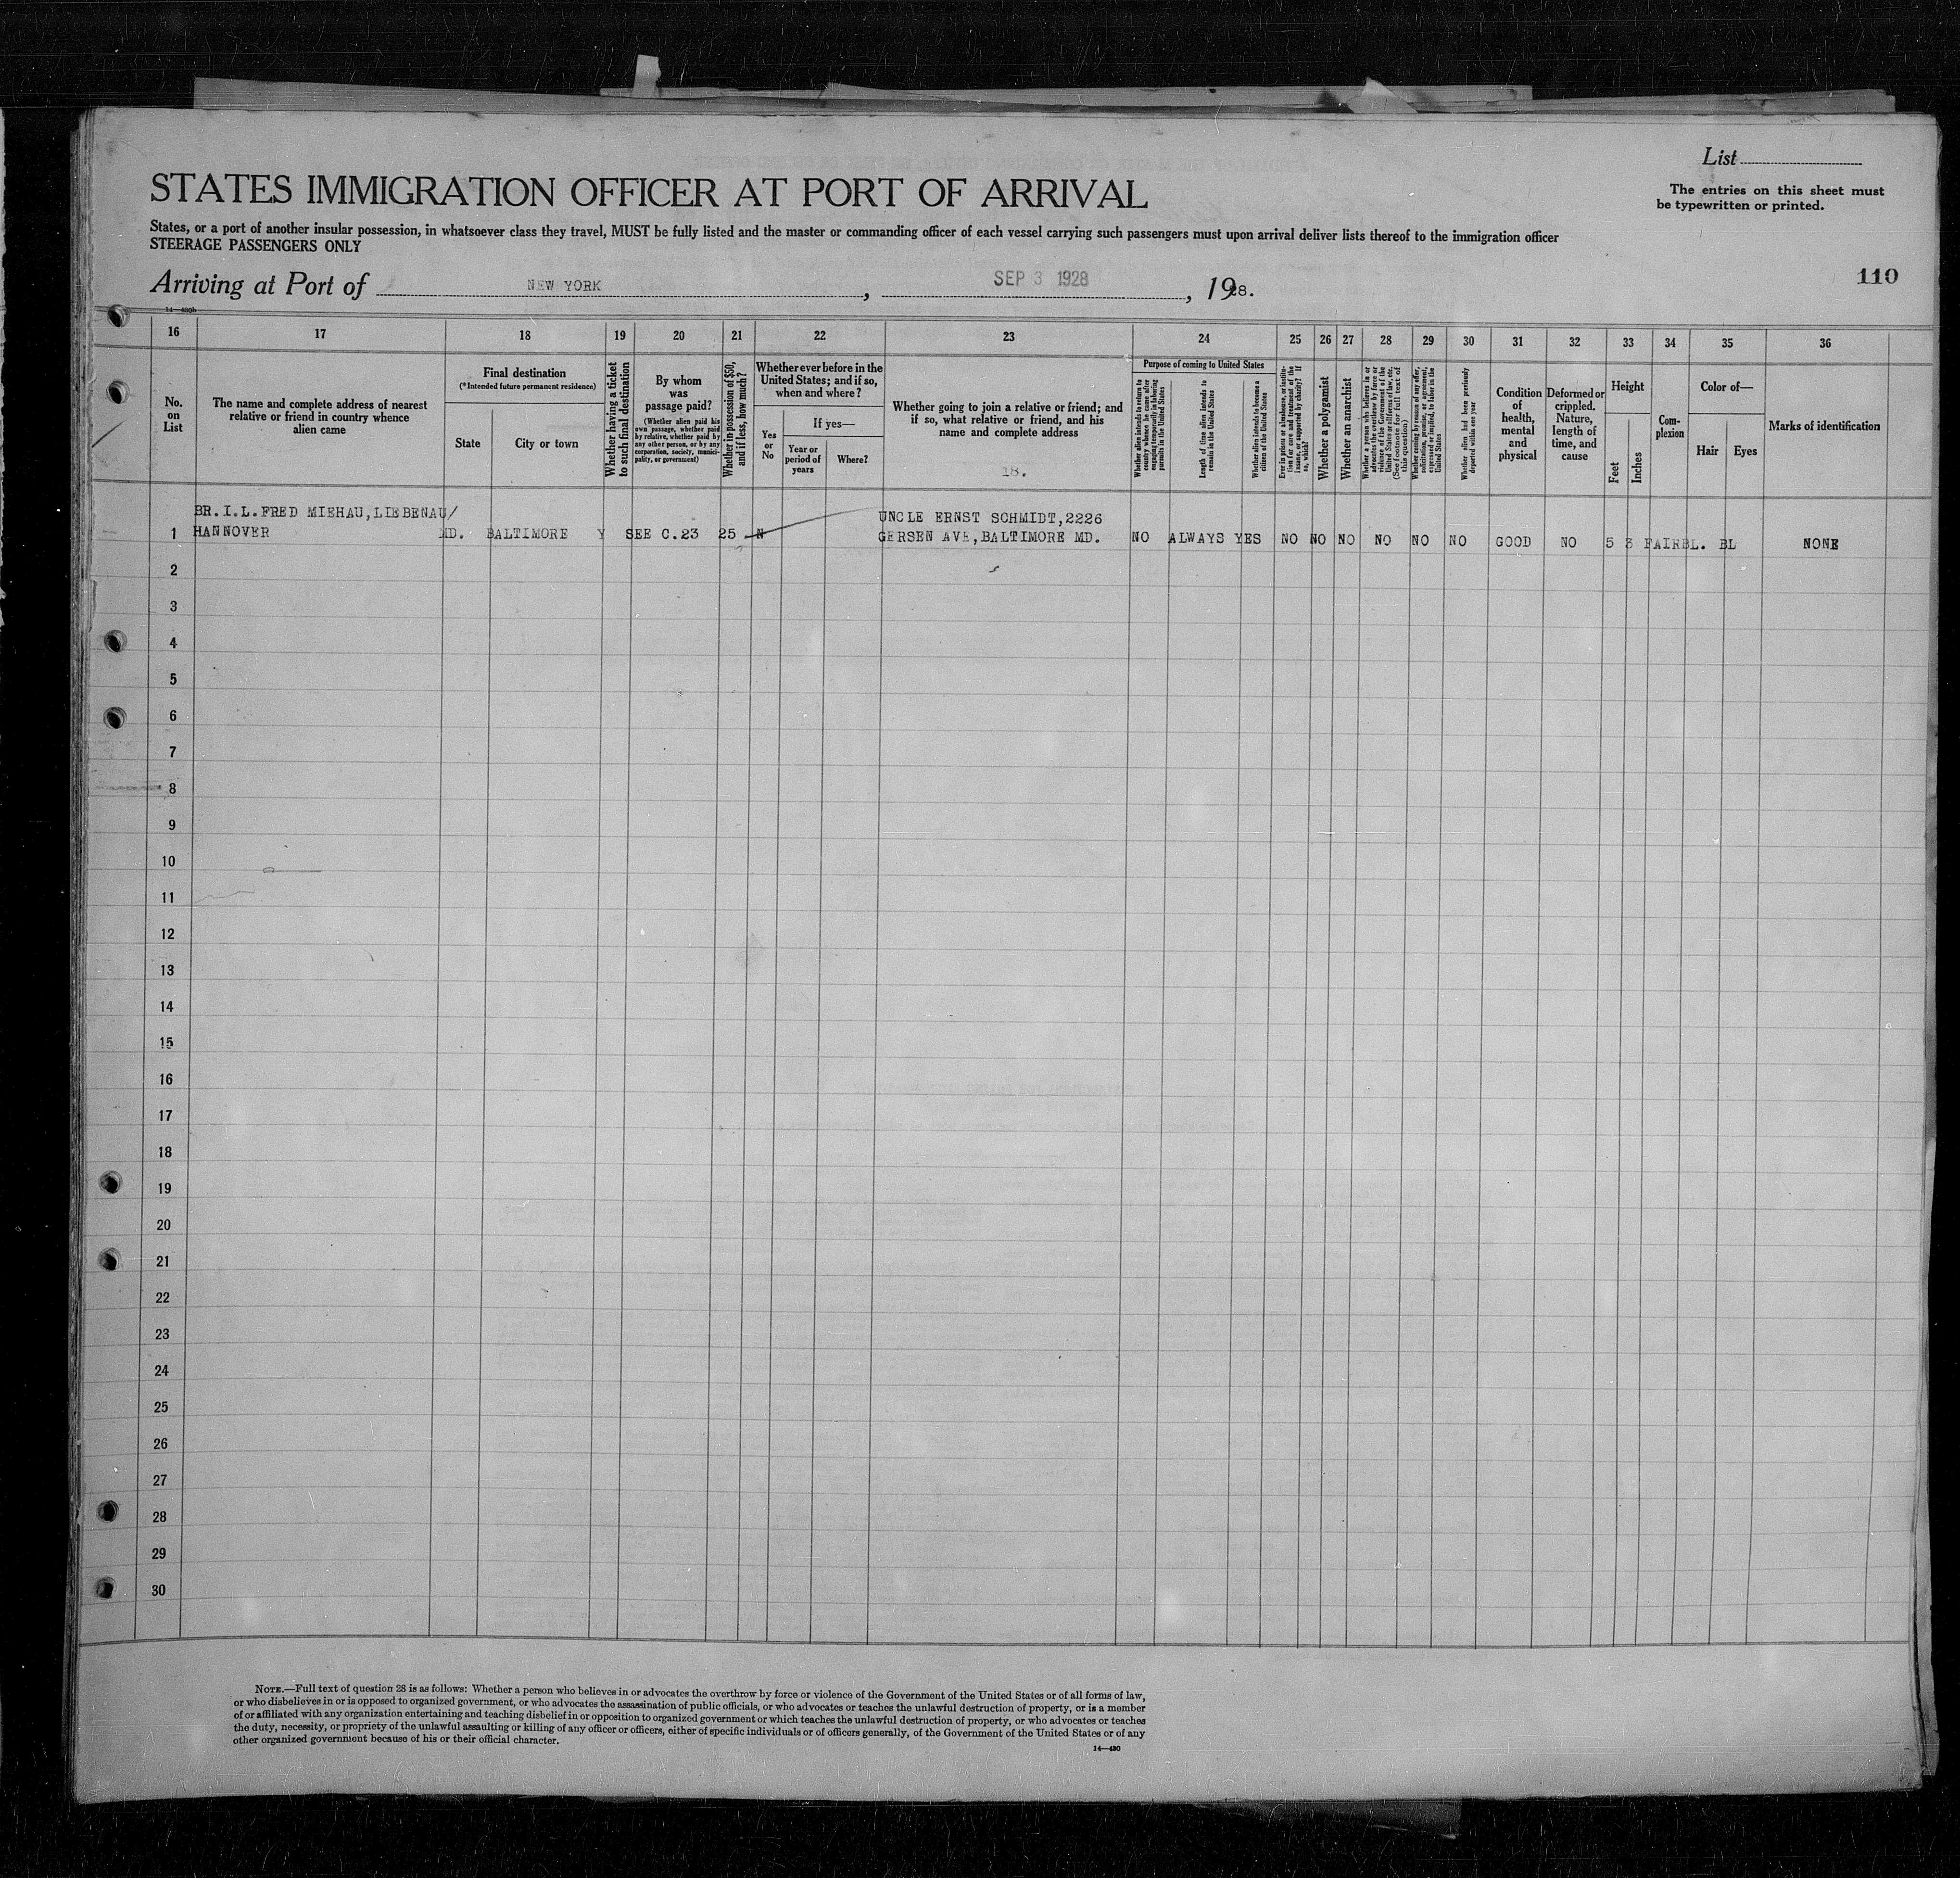 List
STATES IMMIGRATION OFFICER AT PORT OF ARRIVAL
The entries on this sheet must
be typewritten or printed.
States, or a port of another insular possession, in whatsoever class they travel, MUST be fully listed and the master or commanding officer of each vessel carrying such passengers must upon arrival deliver lists thereof to the immigration officer
STEERAGE PASSENGERS ONLY
110
Arriving at Port of NEW YORK, SEP 3 1928, 1928.
14—430b
16 17 18 19 20 21 22 23 24 25 26 27 28 29 30 31 32 33 34 35 36
No.
on
List
The name and complete address of nearest
relative or friend in country whence
alien came
Final destination
(*Intended future permanent residence)
State
City or town
Whether having a ticket
to such final destination
By whom
was
passage paid?
(Whether alien paid his
own passage, whether paid
by relative, whether paid by
any other person, or by any
corporation, society, munici-
pality, or government)
Whether in possession of $50,
and if less, how much?
Whether ever before in the
United States; and if so,
when and where?
If yes—
Yes
or
No
Year or
period of
years
Where?
Whether going to join a relative or friend; and
if so, what relative or friend, and his
name and complete address
18.
Purpose of coming to United States
Whether alien intends to return to
country whence he came after
engaging temporarily in laboring
pursuits in the United States
Length of time alien intends to
remain in the United States
Whether alien intends to become a
citizen of the United States
Ever in prison or almshouse, or institu-
tion for care and treatment of the
insane, or supported by charity? If
so, which?
Whether a polygamist
Whether an anarchist
Whether a person who believes in or
advocates the overthrow by force or
violence of the Government of the
United States or all forms of law, etc.
(See footnote for full text of
this question)
Whether coming by reason of any offer,
solicitation, promise, or agreement,
expressed or implied, to labor in the
United States
Whether alien had been previously
deported within one year
Condition
of
health,
mental
and
physical
Deformed or
crippled.
Nature,
length of
time, and
cause
Height
Feet
Inches
Com-
plexion
Color of—
Hair
Eyes
Marks of identification
BR.I.L.FRED MIEHAU,LIEBENAU/
UNCLE ERNST SCHMIDT,2226
1 HANNOVER MD. BALTIMORE Y SEE C.23 25 N GERSEN AVE,BALTIMORE MD. NO ALWAYS YES NO NO NO NO NO NO GOOD NO 5 3 FAIR BL. BL NONE
2
3
4
5
6
7
8
9
10
11
12
13
14
15
16
17
18
19
20
21
22
23
24
25
26
27
28
29
30
NOTE.—Full text of question 28 is as follows: Whether a person who believes in or advocates the overthrow by force or violence of the Government of the United States or of all forms of law,
or who disbelieves in or is opposed to organized government, or who advocates the assassination of public officials, or who advocates or teaches the unlawful destruction of property, or is a member
of or affiliated with any organization entertaining and teaching disbelief in or opposition to organized government or which teaches the unlawful destruction of property, or who advocates or teaches
the duty, necessity, or propriety of the unlawful assaulting or killing of any officer or officers, either of specific individuals or of officers generally, of the Government of the United States or of any
other organized government because of his or their official character.
14—430